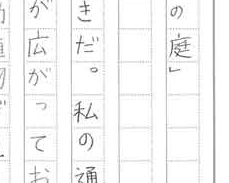 の庭」
きだ。私の通
が広がってお